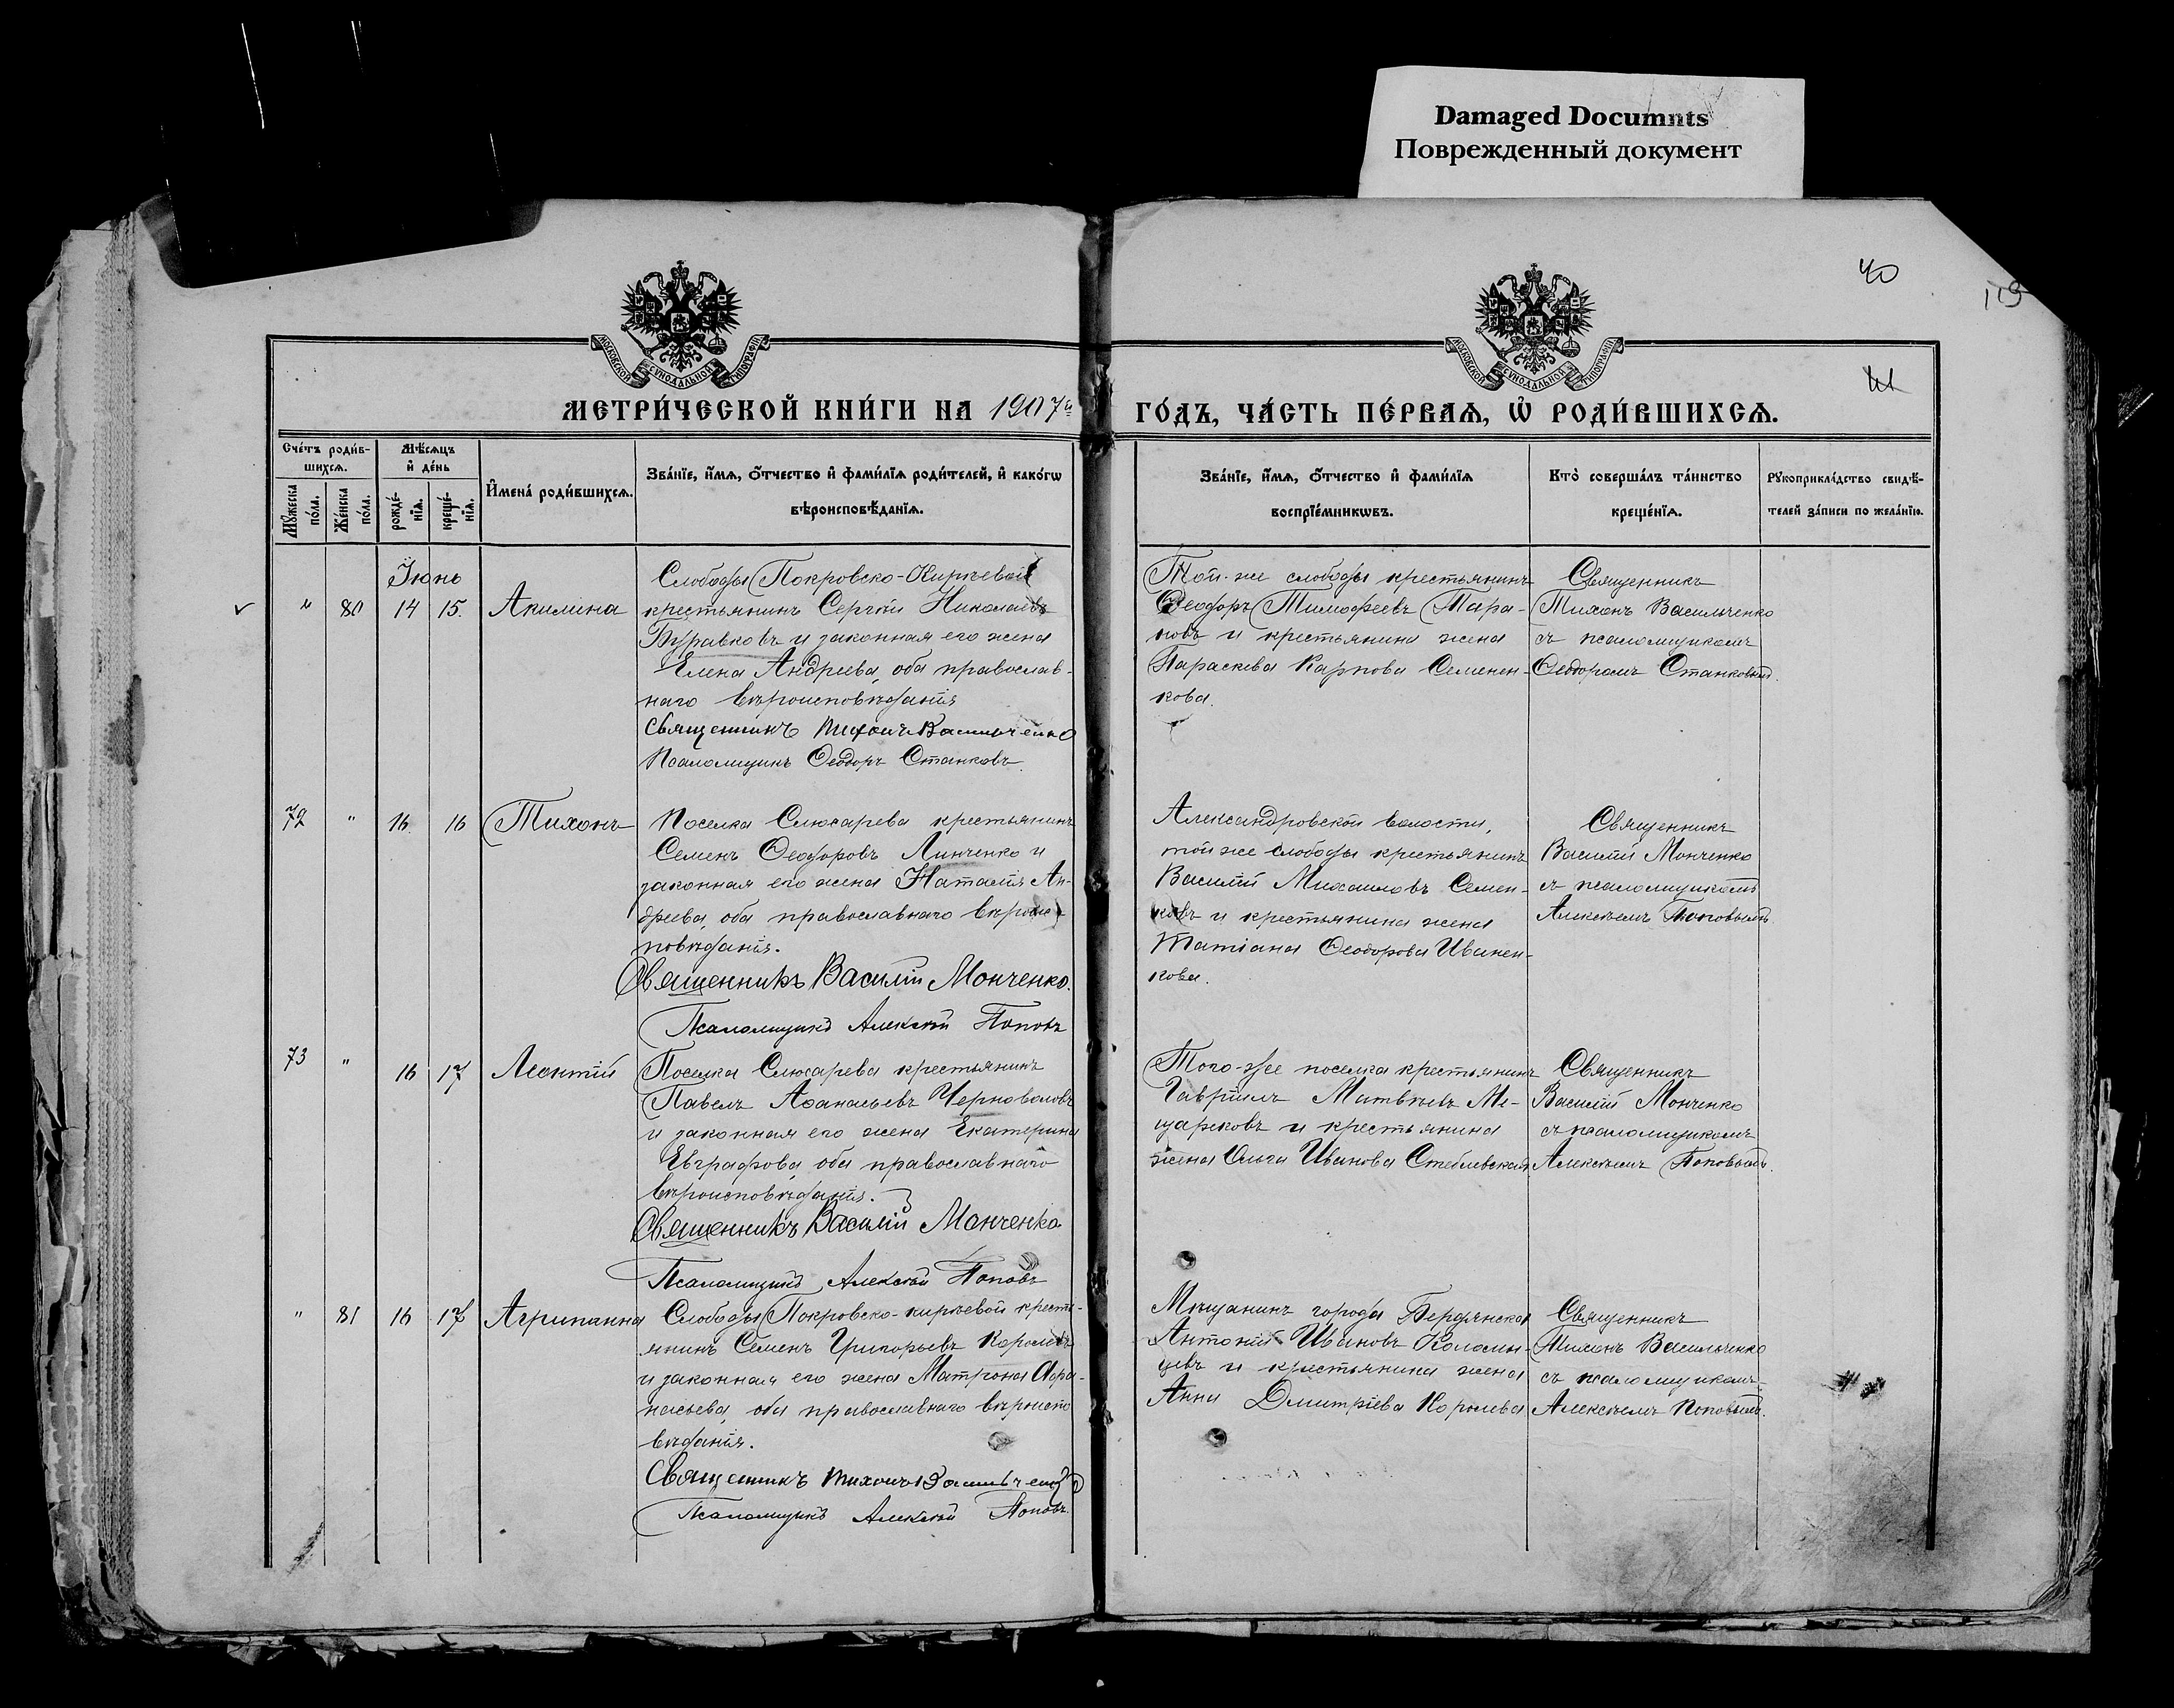 Damaged Documnts
Поврежденный документ
40
119
41
МОСКОВСКОЙ СѴНОДАЛЬНОЙ ТИПОГРАФІИ
МОСКОВСКОЙ СѴНОДАЛЬНОЙ ТИПОГРАФІИ
МЕТРИ́ЧЕСКОЙ КНИ́ГИ НА 1907й ГО́ДЪ, ЧА́СТЬ ПЕ́РВАѦ, Ѡ҆ РОДИ́ВШИХСѦ.
Сче́тъ роди́в-
шихсѧ.
Мꙋ́жеска по́ла.
Же́нска по́ла.
Мѣ́сѧцъ
и҆ де́нь
рожде́-
нїѧ.
креще́-
нїѧ.
И҆мена́ роди́вшихсѧ.
Зва́нїе, и҆́мѧ, ѻ҆́тчество и҆ фами́лїѧ роди́телей, и҆ како́гѡ
вѣроисповѣ́данїѧ.
Зва́нїе, и҆́мѧ, ѻ҆́тчество и҆ фами́лїѧ
воспрїе́мникѡвъ.
Кто̀ соверша́лъ та́инство
креще́нїѧ.
Рꙋкоприкла́дство свидѣ́-
телей за́писи по жела́нїю.
Іюнь
" 80 14 15. Акилина
Слободы Покровско-Киреевой
крестьянинъ Сергѣй Николаевъ
Журавковъ и законная его жена
Елена Андреева, оба православ-
наго вѣроисповѣданія
Священникъ Тихонъ Васильченко
Псаломщикъ Ѳеодоръ Станковъ.
Той-же слободы крестьянинъ
Ѳеодоръ Тимофеевъ Тара-
новъ и крестьянина жена
Параскева Карпова Семенен-
кова.
Священникъ
Тихонъ Васильченко
съ псаломщикомъ
Ѳеодоромъ Станковымъ.
72 " 16. 16 Тихонъ
Поселка Слюсарева крестьянинъ
Семенъ Ѳеодоровъ Линченко и
законная его жена Наталія Ан-
дреева, оба православнаго вѣроис-
повѣданія.
Священникъ Василій Монченко.
Псаломщикъ Алексѣй Поповъ
Александровской волости,
той же слободы крестьянинъ
Василій Михаиловъ Семен-
ковъ и крестьянина жена
Татіана Ѳеодорова Иванен-
кова.
Священникъ
Василій Монченко
съ псаломщикомъ
Алексѣемъ Поповымъ.
73 " 16 17 Леонтій
Поселка Слюсарева крестьянинъ
Павелъ Аѳанасьевъ Черноволовъ
и законная его жена Екатерина
Евграфова, оба православнаго
вѣроисповѣданія.
Священникъ Василій Монченко
Псаломщикъ Алексѣй Поповъ
Того-же поселка крестьянинъ
Гавріилъ Матвѣевъ Ме-
щаряковъ и крестьянина
жена Ольга Иванова Стеблевская
Священникъ
Василій Монченко
съ псаломщикомъ
Алексѣемъ Поповымъ.
" 81 16 17 Агрипинна
Слободы Покровско-Киреевой кресть-
янинъ Семенъ Григорьевъ Королевъ
и законная его жена Матрона Аѳа-
насьева, оба православнаго вѣроиспо
вѣданія.
Священникъ Тихонъ Васильченко
Псаломщикъ Алексѣй Поповъ.
Мѣщанинъ города Бердянска
Антоній Ивановъ Коломы-
цевъ и крестьянина жена
Анна Дмитріева Королева
Священникъ
Тихонъ Васильченко
съ псаломщикомъ
Алексѣемъ Поповымъ.